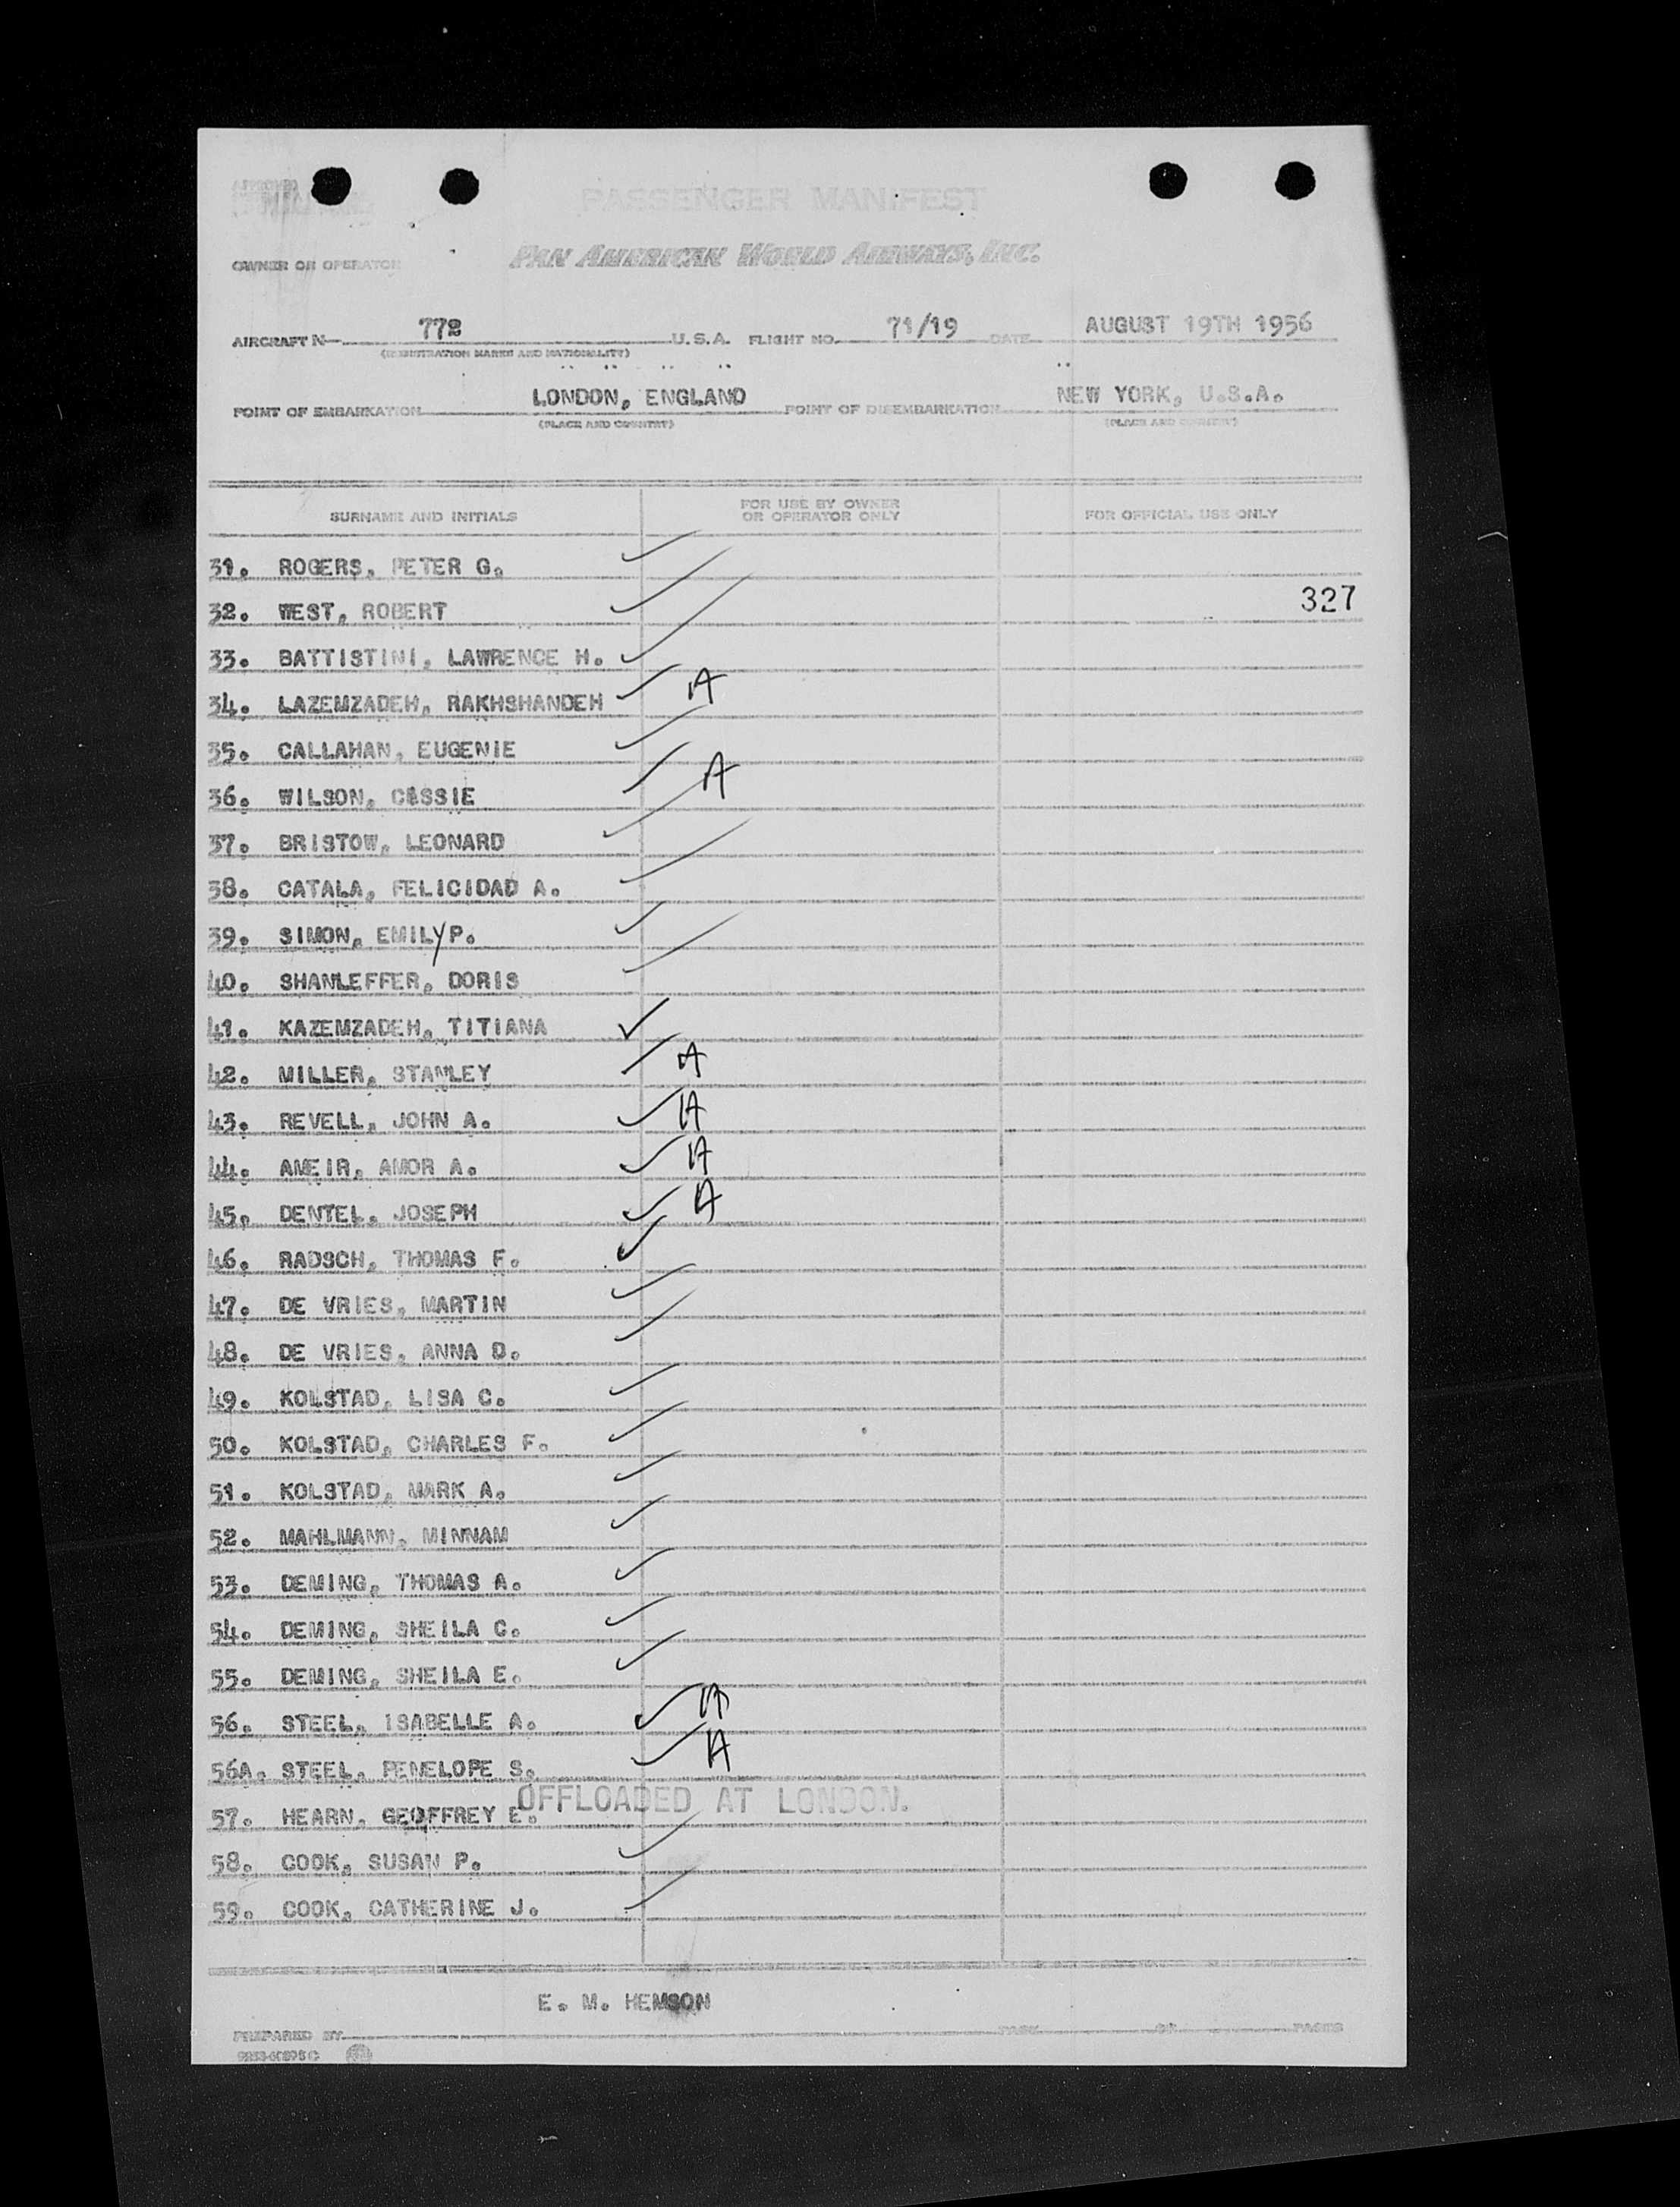 APPROVED
PASSENGER MANIFEST
OWNER OR OPERATOR PAN AMERICAN WORLD AIRWAYS, INC.
AIRCRAFT N— 772 U.S.A. FLIGHT NO. 71/19 DATE AUGUST 19TH 1956
(REGISTRATION MARKS AND NATIONALITY)
POINT OF EMBARKATION LONDON, ENGLAND POINT OF DISEMBARKATION NEW YORK, U.S.A.
(PLACE AND COUNTRY) (PLACE AND COUNTRY)
SURNAME AND INITIALS FOR USE BY OWNER OR OPERATOR ONLY FOR OFFICIAL USE ONLY
31. ROGERS, PETER G. ✓
32. WEST, ROBERT ✓ 327
33. BATTISTINI, LAWRENCE H. ✓
34. LAZEMZADEH, RAKHSHANDEH ✓ A
35. CALLAHAN, EUGENIE ✓
36. WILSON, CASSIE ✓ A
37. BRISTOW, LEONARD ✓
38. CATALA, FELICIDAD A. ✓
39. SIMON, EMILY P. ✓
40. SHANLEFFER, DORIS ✓
41. KAZEMZADEH, TITIANA ✓
42. MILLER, STANLEY ✓ A
43. REVELL, JOHN A. ✓ A
44. AMEIR, AMOR A. ✓ A
45. DENTEL, JOSEPH ✓ A
46. RADSCH, THOMAS F. ✓
47. DE VRIES, MARTIN ✓
48. DE VRIES, ANNA D. ✓
49. KOLSTAD, LISA C. ✓
50. KOLSTAD, CHARLES F. ✓
51. KOLSTAD, MARK A. ✓
52. MAHLMANN, MINNAM ✓
53. DEMING, THOMAS A. ✓
54. DEMING, SHEILA C. ✓
55. DEMING, SHEILA E. ✓
56. STEEL, ISABELLE A. ✓ A
56A. STEEL, PENELOPE S. ✓ A
OFFLOADED AT LONDON.
57. HEARN, GEOFFREY E.
58. COOK, SUSAN P. ✓
59. COOK, CATHERINE J. ✓
E. M. HEMSON
PREPARED BY PAGE OF PAGES